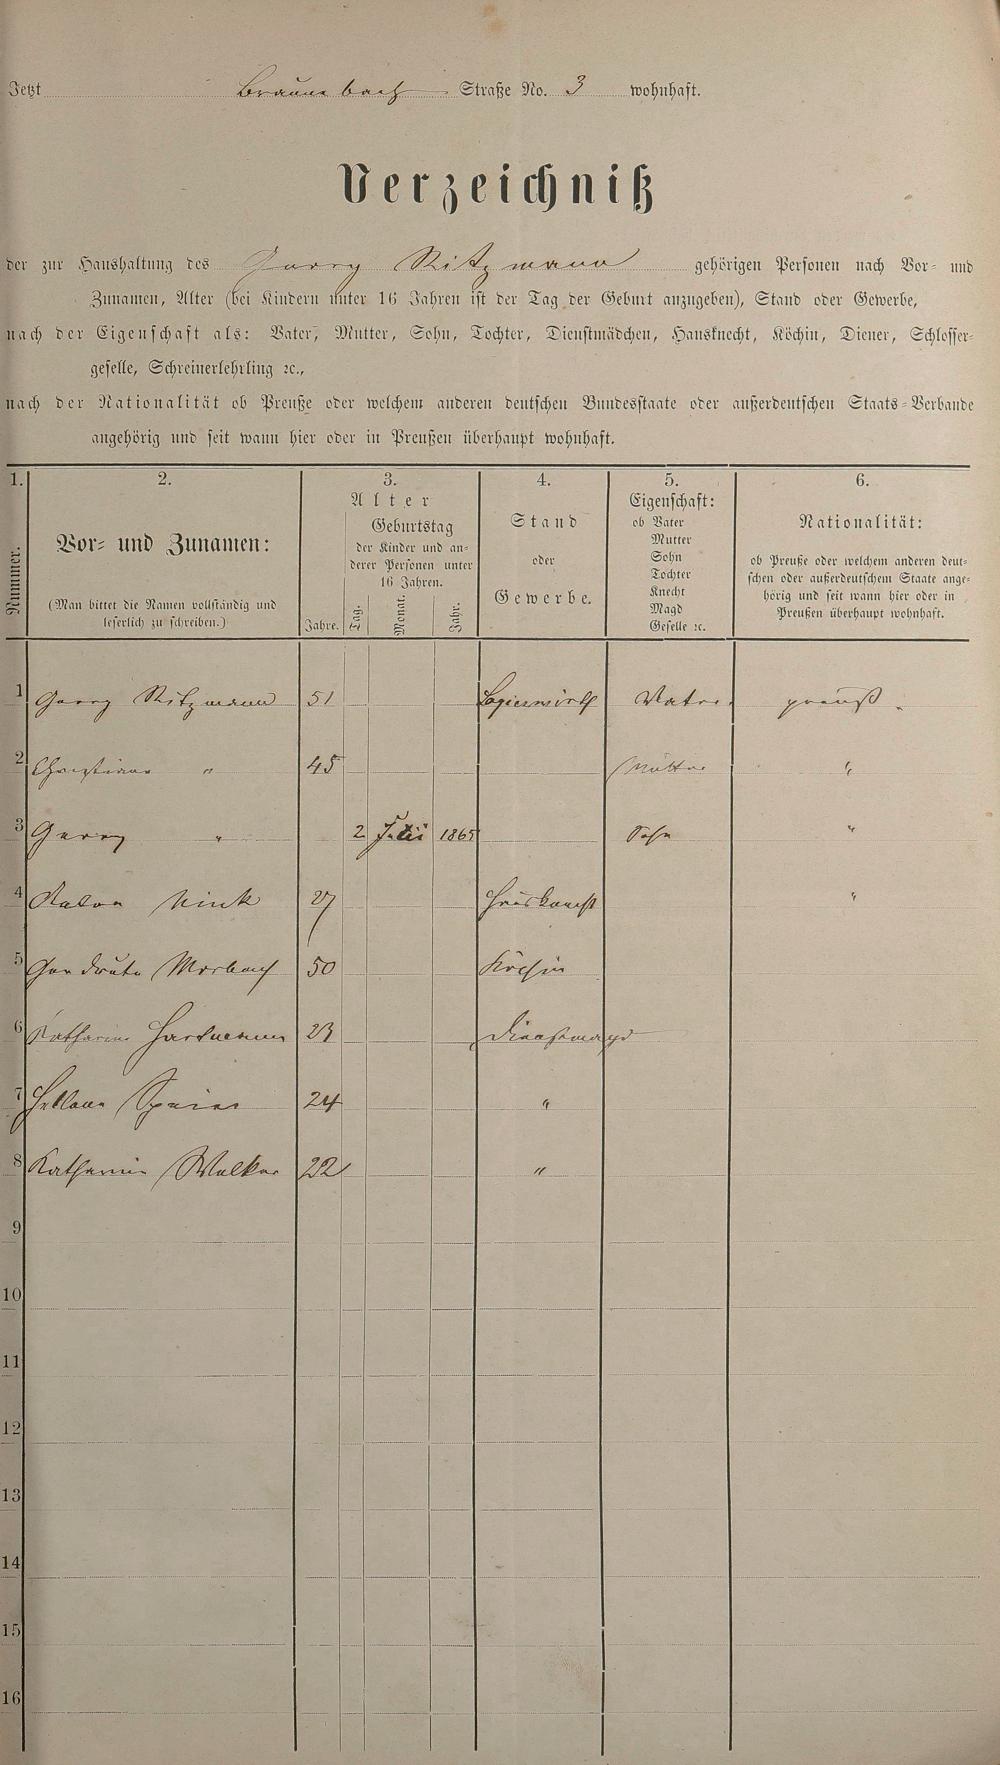 Jetzt Braunbach Straße No. 3 wohnhaft.
Verzeichniß
der zur Haushaltung des Georg Ritzmann gehörigen Personen nach Vor- und
Zunamen, Alter (bei Kindern unter 16 Jahren ist der Tag der Geburt anzugeben), Stand oder Gewerbe,
nach der Eigenschaft als: Vater, Mutter, Sohn, Tochter, Dienstmädchen, Hausknecht, Köchin, Diener, Schlosser-
geselle, Schreinerlehrling ꝛc.,
nach der Nationalität ob Preuße oder welchem anderen deutschen Bundesstaate oder außerdeutschen Staats-Verbande
angehörig und seit wann hier oder in Preußen überhaupt wohnhaft.
1. 2. 3. 4. 5. 6.
Nummer.
Vor- und Zunamen:
(Man bittet die Namen vollständig und
leserlich zu schreiben.)
Alter
Geburtstag
der Kinder und an-
derer Personen unter
16 Jahren.
Jahre. Tag. Monat. Jahr.
Stand
oder
Gewerbe.
Eigenschaft:
ob Vater
Mutter
Sohn
Tochter
Knecht
Magd
Geselle ꝛc.
Nationalität:
ob Preuße oder welchem anderen deut-
schen oder außerdeutschem Staate ange-
hörig und seit wann hier oder in
Preußen überhaupt wohnhaft.
1 Georg Ritzmann 51 Logierwirth Vater preuß.
2 Christiane " 45 Mutter "
3 Georg " 2 Juli 1865 Sohn "
4 27 Hausknecht "
5 Gerdrute Morbach 50 Köchin
6 Katharine Hartmann 23 Dienstmagd
7 24 "
8 Katharine Walker 22 "
9
10
11
12
13
14
15
16